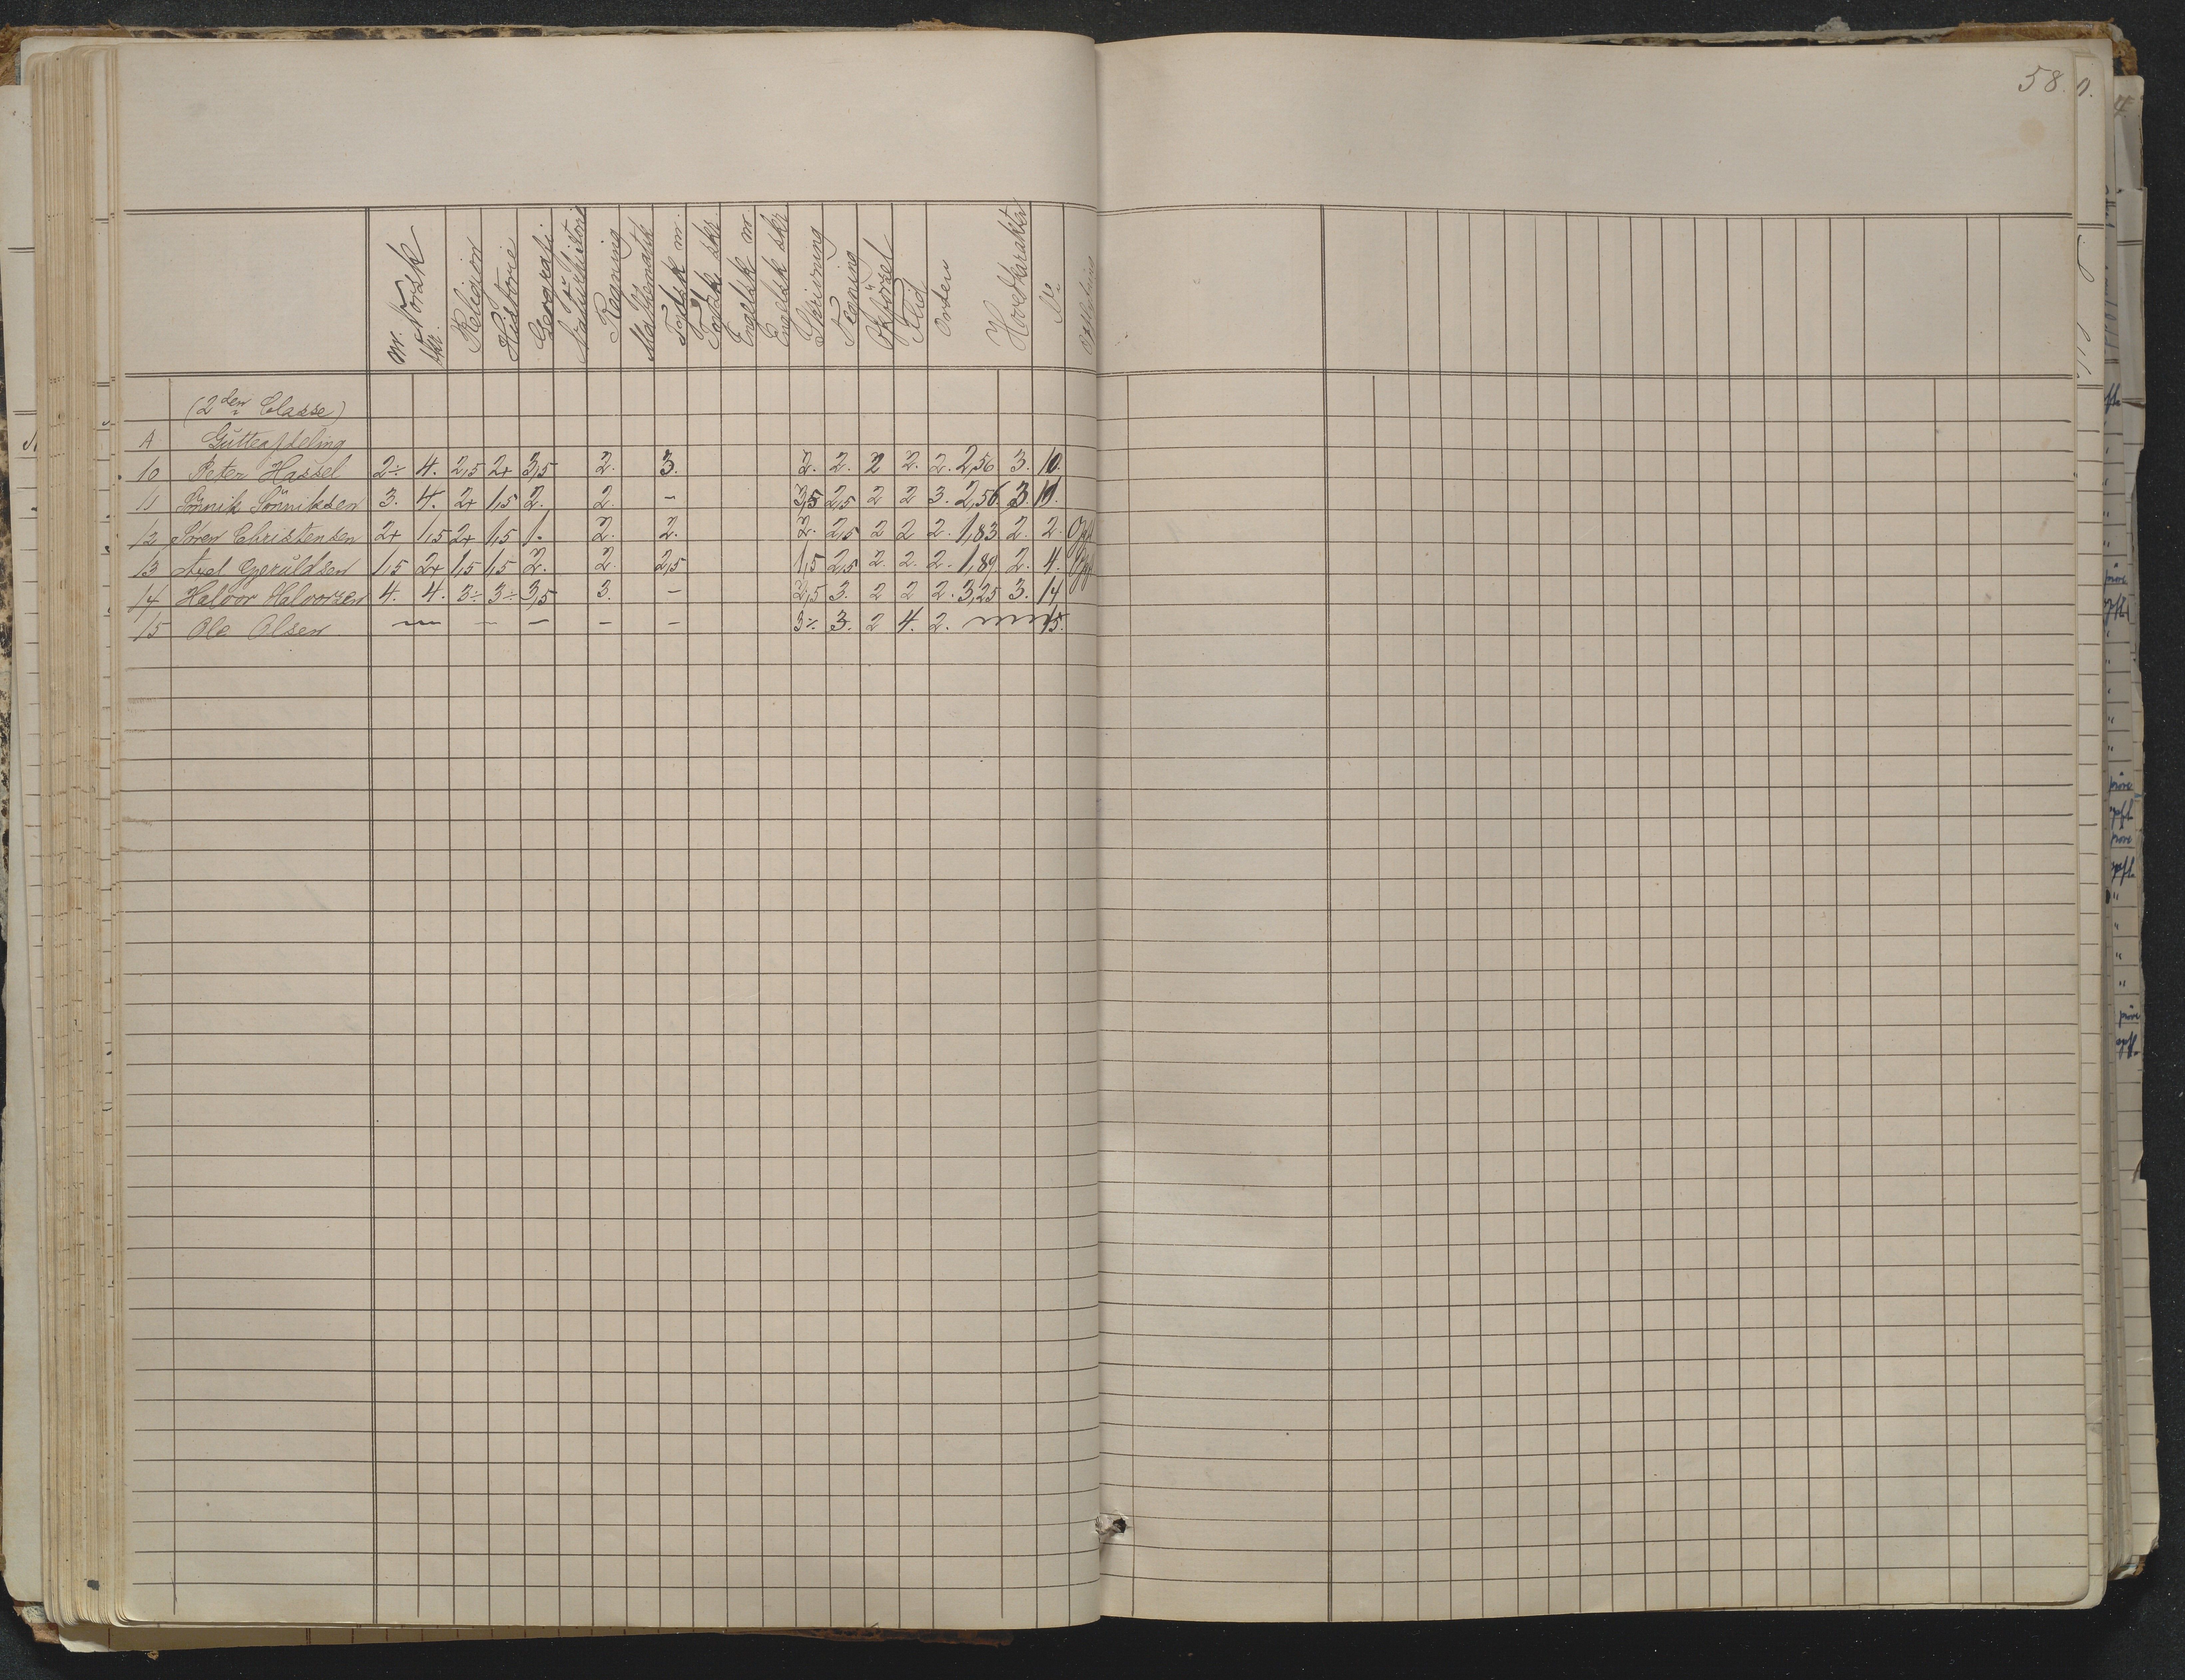 58.
mr. Norsk skr. Religion Historie Geografi Naturhistorie Regning Mathematik Tydsk m. Tydsk skr. Engelsk m. Engelsk skr. Skrivning Tegning Opførsel Flid Orden Hovedkarakter No Opflytning
(2den Classe)
A. Gutteafdeling
10 Peter Hassel 2÷ 4. 2,5 2+ 3,5 2. 3. 2. 2. 2 2. 2. 2,56 3. 10.
11 Sünnik Sünniksen 3. 4. 2+ 1,5 2. 2. – 3,5 2,5 2 2 3. 2,56. 3. 10.
12 Søren Christensen 2+ 1,5 2+ 1,5 1. 2. 2. 2. 2,5 2 2 2. 1,83 2. 2. Opf
13 Axel Gjeruldsen 1,5 2+ 1,5 1,5 2. 2. 2,5 1,5 2,5 2. 2. 2. 1,89 2. 4. Opf
14 Halvor Halvorsen 4. 4. 3÷ 3÷ 3,5 3. – 3,5 3. 2 2 2. 3,25 3. 14
15 Ole Olsen — – – – – 3÷ 3. 2 4. 2. — 15.